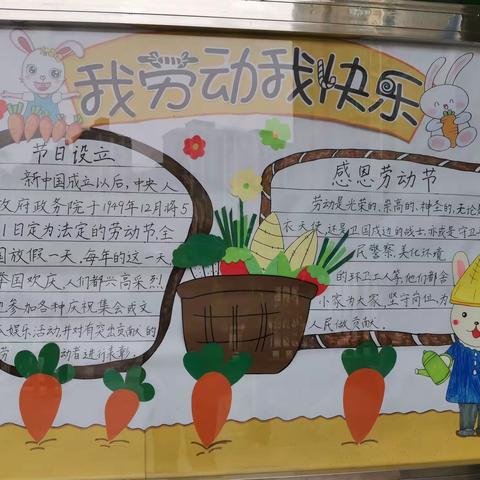 我劳动我快乐
节日设立
新中国成立以后,中央人
政府政务院于1949年12月将5
1日定为法定的劳动节,全
国放假一天。每年的这一天
举国欢庆,人们都兴高采烈
参加各种庆祝集会或文
娱乐活动,并对有突出贡献的
劳动者进行表彰。
感恩劳动节
劳动是光荣的、崇高的、神圣的,无论是
衣天使,还是卫国戍边的战士,亦或是守卫
民警察、美化环境
的环卫工人等,他们都舍
小家为大家,坚守岗位,为
人民做贡献。